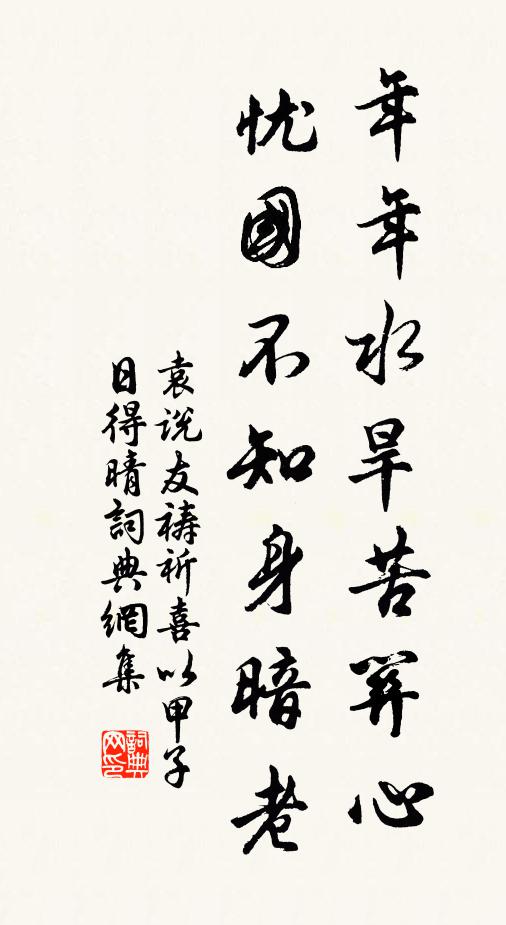 年年水旱苦関心
忧國不知身暗老
袁说友禱祈喜以甲子
日得晴詞典網集
詞典网印